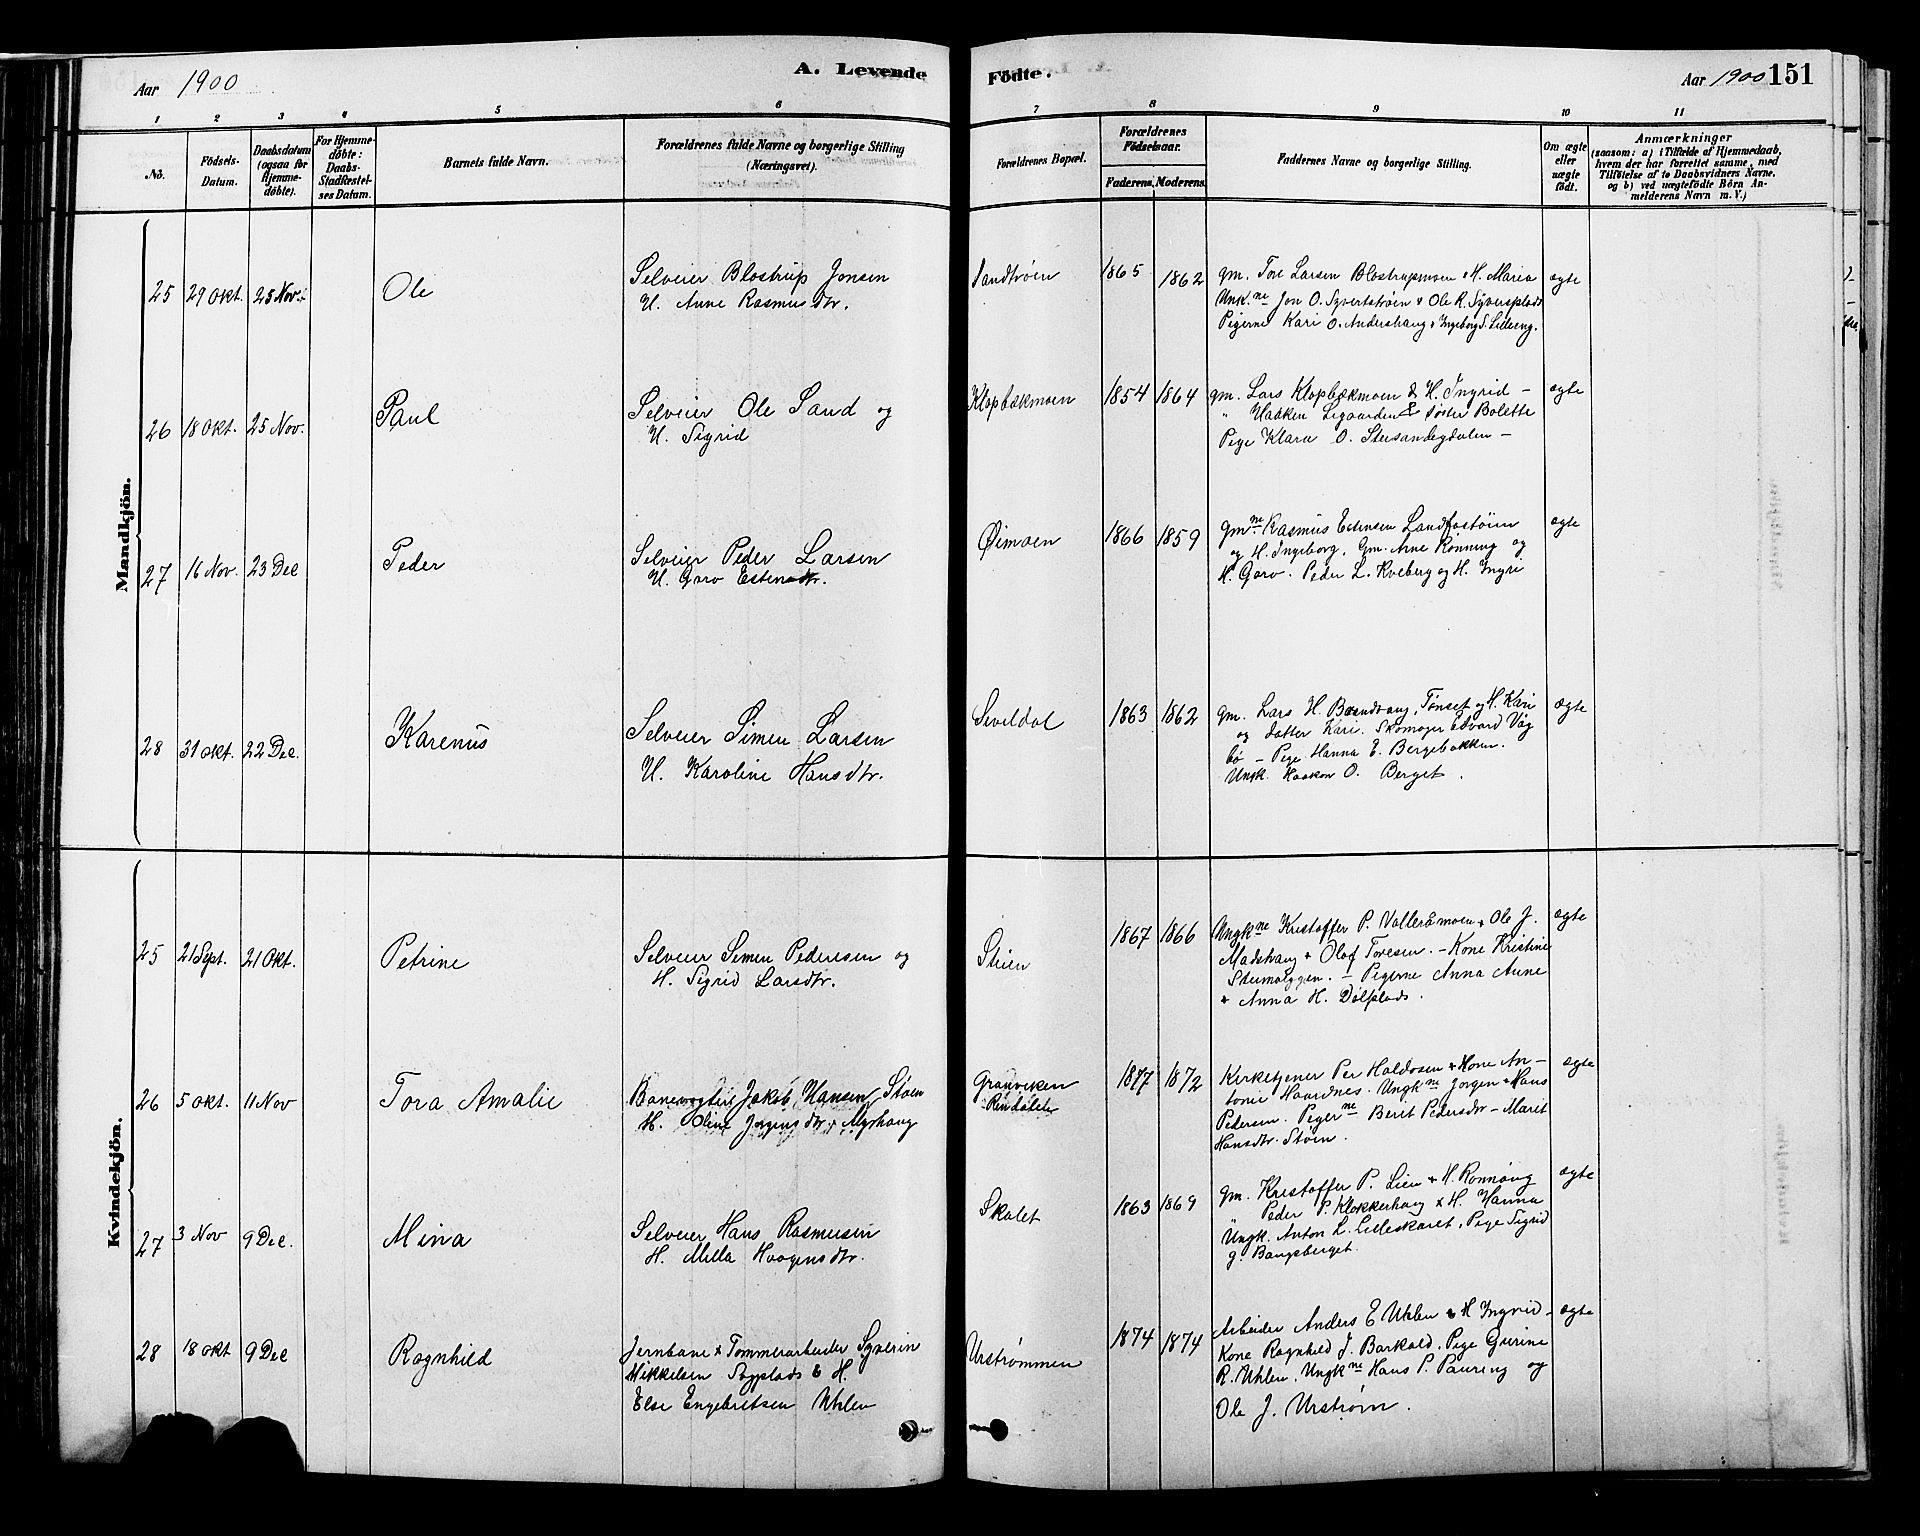 Aar 1900
A. Levende
Födte.
Aar 1900 151
1 2 3 4 5 6 7 8 9 10 11
No.
Födsels-
Datum.
Daabsdatum
(ogsaa for
Hjemme-
döbte).
For Hjemme-
döbte:
Daabs-
Stadfæstel-
ses Datum.
Barnets fulde Navn.
Forældrenes fulde Navne og borgerlige Stilling
(Næringsvei).
Forældrenes Bopæl.
Forældrenes
Födselsaar.
Faderens. Moderens.
Faddernes Navne og borgerlige Stilling.
Om ægte
eller
uægte
födt.
Anmærkninger
(saasom: a) i Tilfælde af Hjemmedaab,
hvem der har forrettet samme, med
Tilföielse af to Daabsvidners Navne,
og b) ved uægtefödte Börn An-
melderens Navn m. V.)
Mandkjön.
25 29 Okt. 25 Nov.
Ole
Selveier Blostrup Jonsen
H. Anne Rasmusdtr.
Sandtrøen
1865 1862
gm. Tore Larsen Blostrupmoen & H. Maria
Ungk.ne Jon O. Syvertstrøen & Ole R. Syversplads
Pigerne Kari O. Andershaug & Ingeborg S. Lilleeng.
ægte
26 18 Okt. 25 Nov.
Paul
Selveier Ole Sand og
H. Sigrid
Klopbækmoen
1854 1864
gm. Lars Klopbækmoen & H. Ingrid –
" Haaken Legaarden & søster Bolette
Pige Klara O. Steisandegdalen –
ægte
27 16 Nov. 23 Dec
Peder
Selveier Peder Larsen
H. Goro Estensdtr.
Øimoen
1866 1859
gm.ne Rasmus Estensen Landfastøien
og H. Ingeborg, Gm. Arne Rønning og
H. Goro. Peder L. Kveberg og H. Ingri
ægte
28 31 Okt. 22 Dec.
Karenus
Selveier Simen Larsen
H. Karoline Hansdtr.
Siveldal
1863 1862
gm. Lars H. Brandvang, Tønset og H. Kari
og datter Kari. Skomager Edvard Våg
bø – Pige Hanna E. Bergebakken.
Ungk. Haakon O. Berget.
ægte
Kvindekjön.
25 21 Sept. 21 Okt.
Petrine
Selveier Simen Pedersen og
H. Sigrid Larsdtr.
Steien
1867 1866
Ungk.ne Kristoffer P. Valleråmoen & Ole J.
Madshaug & Olaf Toresen. – Kone Kristine
Steimolyggen. – Pigerne Anna Aune
& Anna H. Dølplads.
ægte
26 5 Okt. 11 Nov
Tora Amalie
Banevogter Jakob Hansen Støen
H. Oline Jørgensdtr. Moshaug
Granviken
Rendalen
1877 1872
Kirketjener Per Haldosen & Kone An-
tonie Haardnes. Ungk.ne Jørgen & Hans
Pedersen. Piger.ne Beret Pedersdtr – Marit
Hansdtr. Støen.
ægte
27 3 Nov 9 Dec.
Mina
Selveier Hans Rasmusen
H. Milla Haagensdtr.
Skalet
1863 1869
gm. Kristoffer P. Lien & H. Rønnaug
" Peder P. Klokkerhaug & H. Hanna
Ungk. Anton L. Lilleskaret, Pige Sigrid
G. Bangsberget.
ægte
28 18 Okt 9 Dec
Ragnhild
Jernbane & Tømmerarbeider Syverin
Mikkelsen Sagplads & H.
Else Engebretsen Uhlen
Urstrømmen
1874 1874
Arbeider Anders E Uhlen & H Ingrid –
Kone Ragnhild J. Barkald. Pige Gurine
R. Uhlen. Ungk.ne Hans P. Pauring og
Ole J. Urstrøm.
ægte